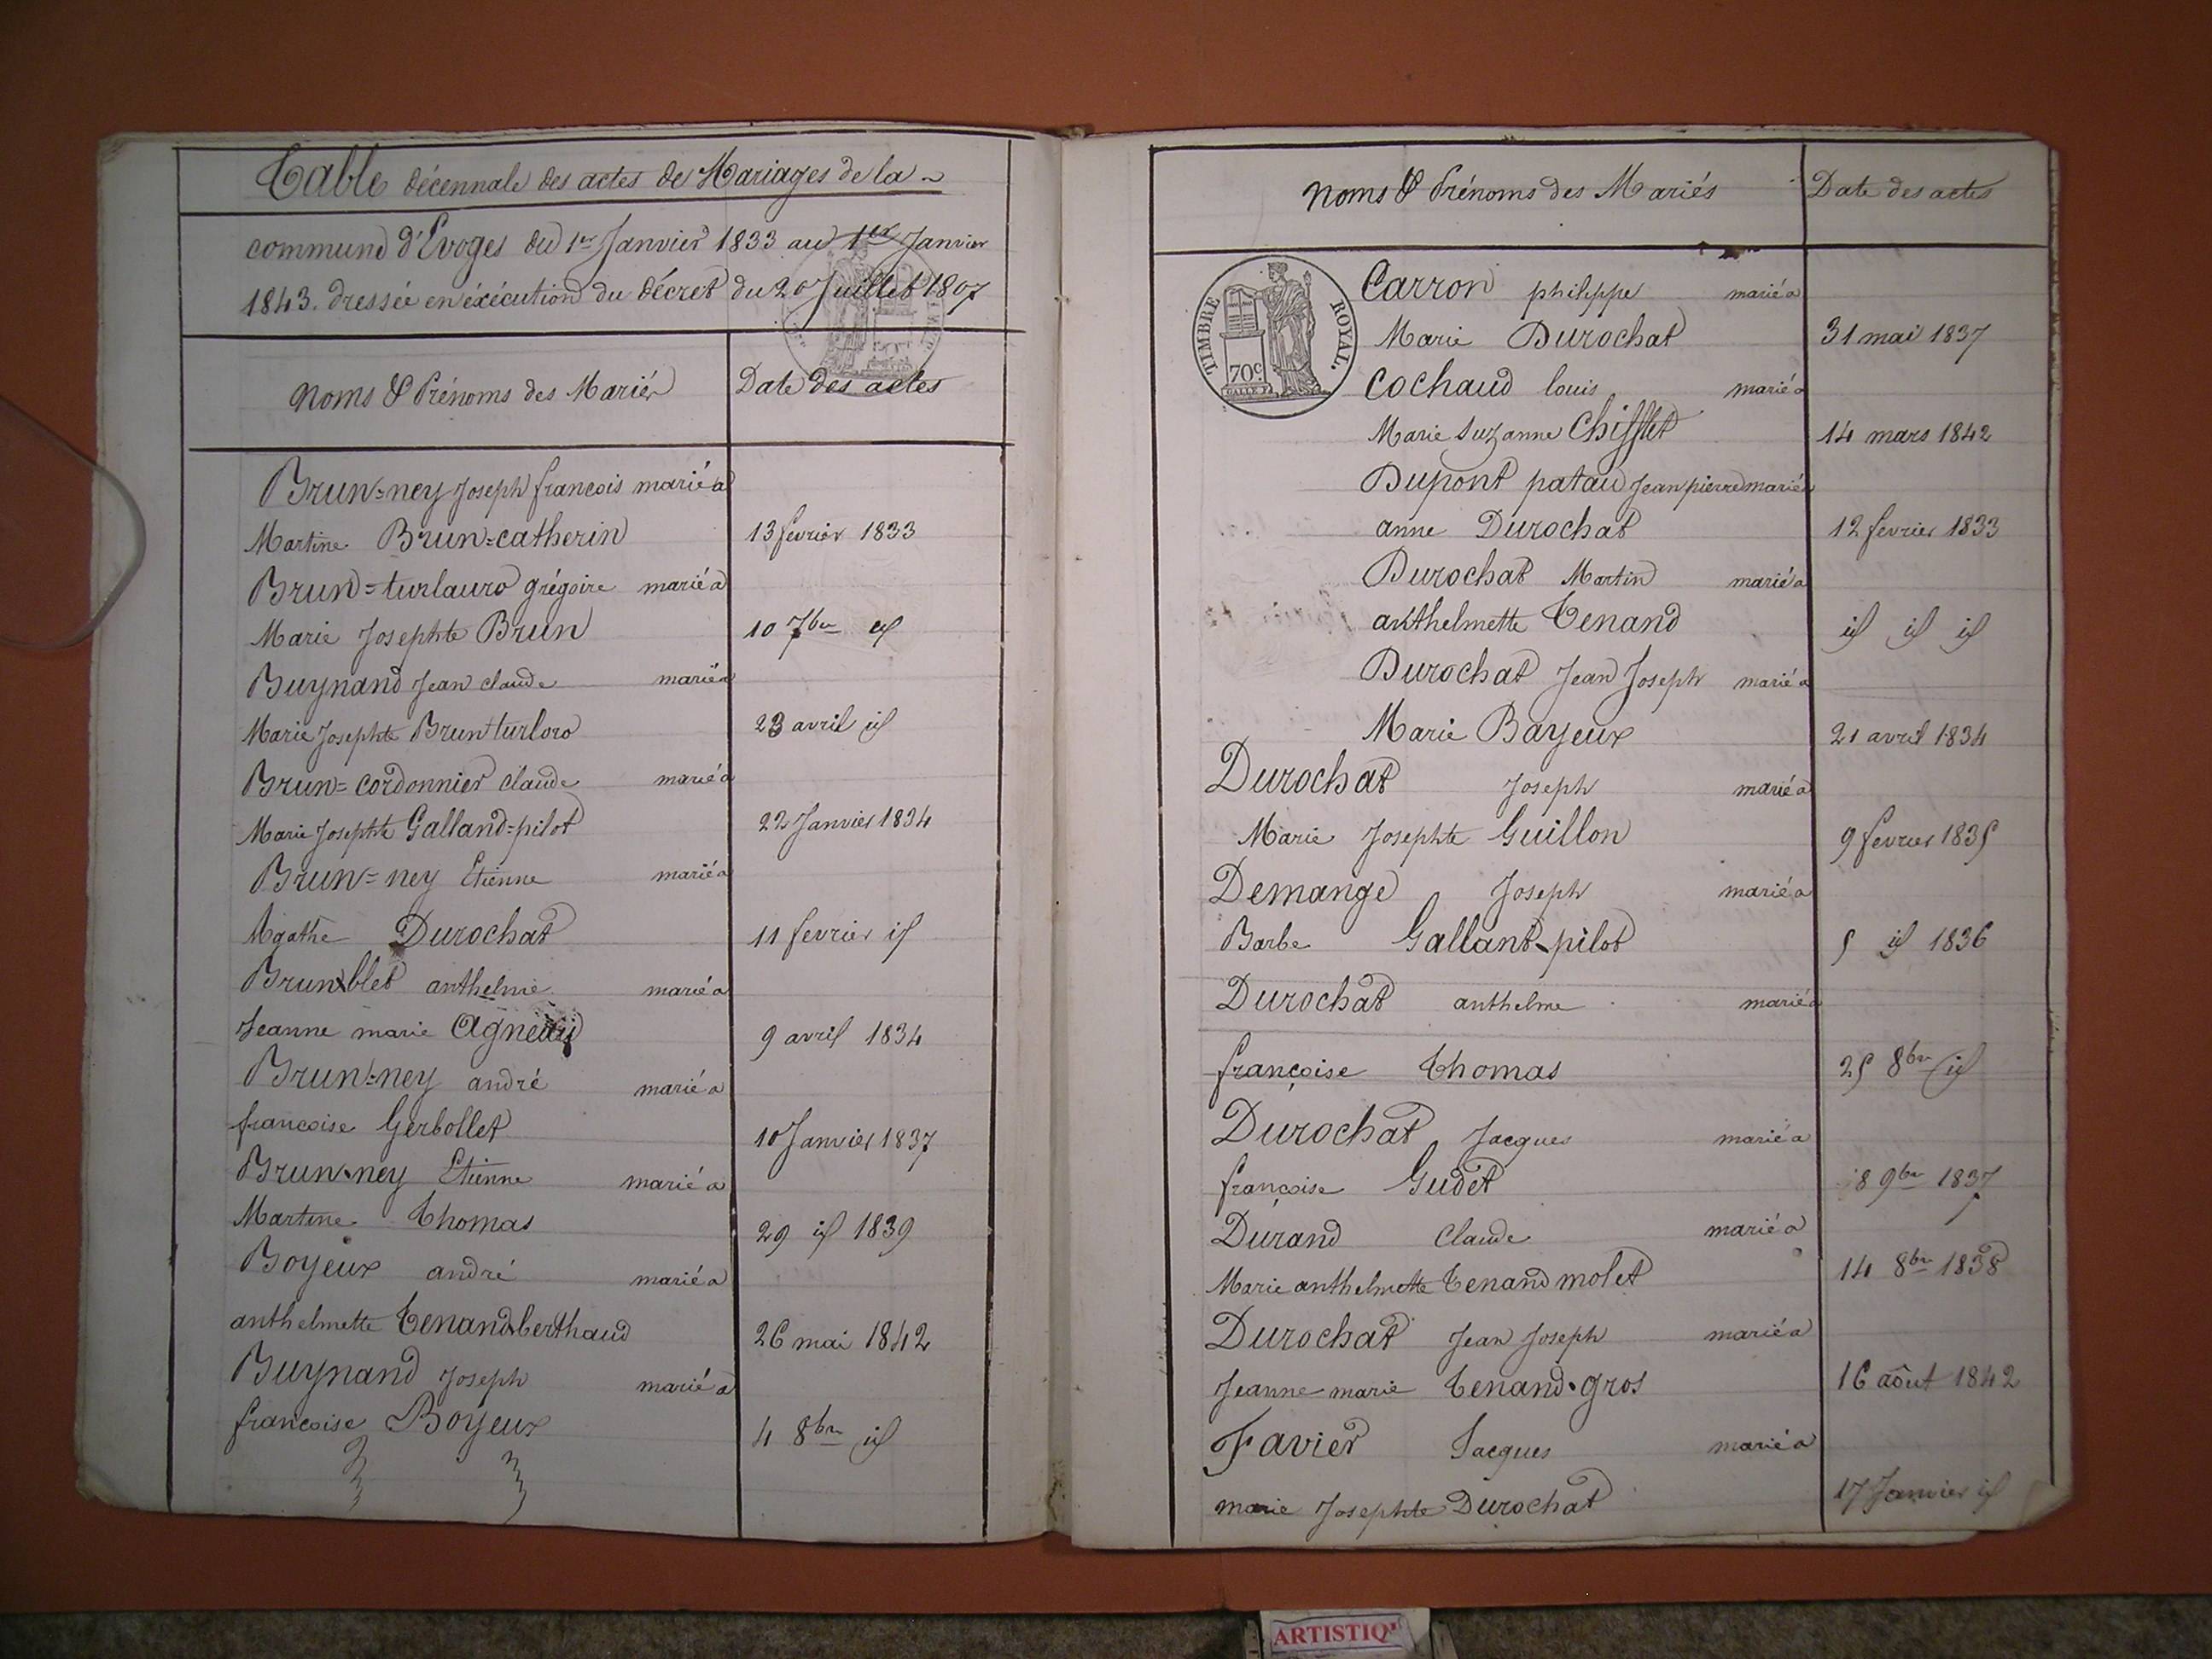 Table décennale des actes de Mariages de la
commune d'Evoges du 1er Janvier 1833 au 1er Janvier
1843. dressée en éxécution du Décret du 20 Juillet 1807
Noms & Prénoms des Mariés
Date des actes
Brun=ney Joseph francois marié a
Martine Brun=catherin 13 fevrier 1833
Brun=turlauro grégoire marié a
Marie Josephte Brun 10 7bre id
Buynand Jean claude marié a
Marie Josephte Brun turloro 23 avril id
Brun=cordonnier claude marié a
Marie Josephte Galland=pilot 22 Janvier 1834
Brun=ney Etienne marié a
Agathe Durochat 11 fevrier id
Brun blet anthelme marié a
Jeanne marie 9 avril 1834
Brun=ney andré marié a
francoise Gerbollet 10 Janvier 1837
Brun-ney Etienne marié a
Martine Thomas 29 id 1839
Boyeux andré marié a
anthelmette Tenand berthaud 26 mai 1842
Buynand Joseph marié a
francoise Boyeux 4 8bre id
Noms & Prénoms des Mariés
Date des actes
TIMBRE ROYAL.
70c
Carron philippe marié a
Marie Durochat 31 mai 1837
Cochaud louis marié a
Marie Suzanne Chifflet 14 mars 1842
Dupont patau Jean pierre marié a
anne Durochat 12 fevrier 1833
Durochat Martin marié a
anthelmette Tenand id id id
Durochat Jean Joseph marié a
Marie Bayeux 21 avril 1834
Durochat Joseph marié a
Marie Josephte Guillon 9 fevrier 1835
Demange Joseph marié a
Barbe Galland-pilot 5 id 1836
Durochat anthelme marié a
françoise Thomas 25 8bre id
Durochat Jacques marié a
françoise Gudet 18 9bre 1837
Durand Claude marié a
Marie anthelmette Tenand molet 14 8bre 1838
Durochat Jean Joseph marié a
Jeanne marie Tenand-gros 16 août 1842
Favier Jacques marié a
marie Josephte Durochat 17 Janvier id
ARTISTIQ